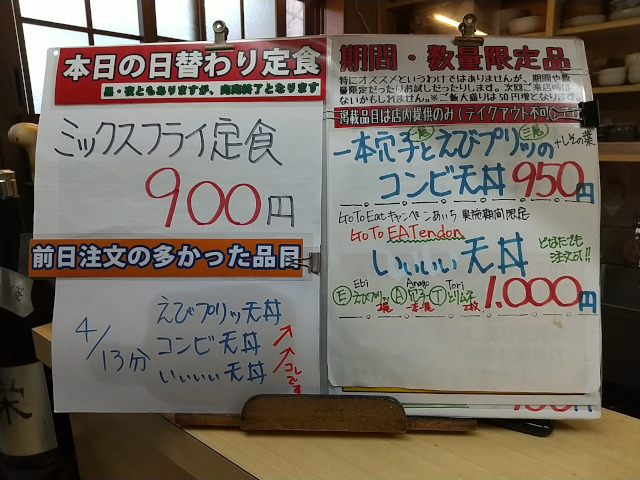 本日の日替わり定食
昼・夜ともありますが、完売終了となります
ミックスフライ定食
900円
前日注文の多かった品目
4/13分
えびプリッ天丼
コンビ天丼
いいぃぃ天丼
コレです
期間・数量限定品
特にオススメというわけではありませんが、期間や数
量限定だったりお試しだったりします。次回ご来店時は
ないかもしれません。※ご飯大盛りは50円増となります。
掲載品目は店内提供のみ(テイクアウト不可)
一本穴子とえびプリッの
一尾 三尾
+しその葉
コンビ天丼 950円
GoToEatキャンペーンあいち 実施期間限定
GoTo EATendon
いいぃぃ天丼
どなたでも
注文OK!!
Ebi Anago Tori
Ⓔえびプリッ Ⓐ穴子 Ⓣとりムネ
2尾 一本 2枚
1,000円
栄